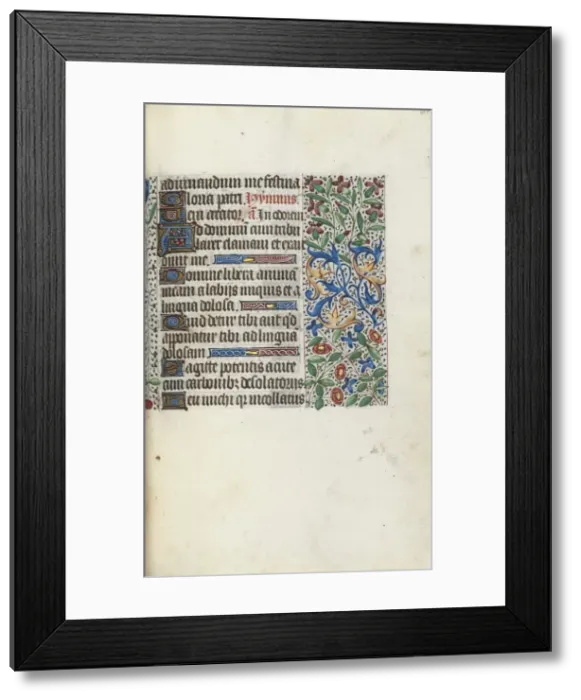 adiuuandum me festina
Gloria patri ymnus
ad dominum cum tribu
larer clamaui et exau
diuit me.
Domine libera anima
meam a labijs iniquis et a
lingua dolosa.
Quid detur tibi aut qd
apponatur tibi ad lingua
dolosam.
Sagitte potentis acute
cum carbonibz desolatorijs
Heu michi qr incollatus